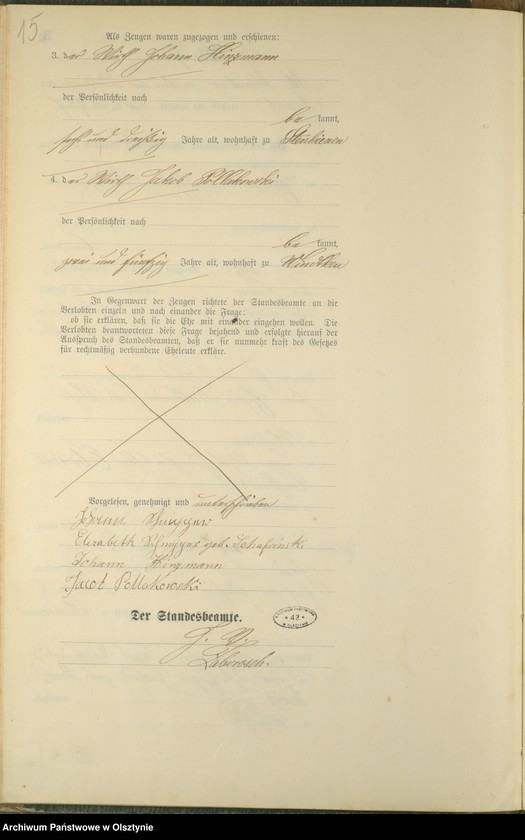 15
Als Zeugen waren zugezogen und erschienen:
3. der Wirth Johann Hinzmann
der Persönlichkeit nach
be kannt,
sechs und dreißig Jahre alt, wohnhaft zu
4. der Wirth Jakob Pollakowski
der Persönlichkeit nach
be kannt,
zwei und fünfzig Jahre alt, wohnhaft zu
In Gegenwart der Zeugen richtete der Standesbeamte an die
Verlobten einzeln und nach einander die Frage:
ob sie erklären, daß sie die Ehe mit einander eingehen wollen. Die
Verlobten beantworteten diese Frage bejahend und erfolgte hierauf der
Ausspruch des Standesbeamten, daß er sie nunmehr kraft des Gesetzes
für rechtmäßig verbundene Eheleute erkläre.
Vorgelesen, genehmigt und unterschrieben
Johann
Elisabeth geb.
Johann Hinzmann
Jacob Pollakowski
Der Standesbeamte.
J. V.
* 42 *
Archiwum Państwowe w Olsztynie